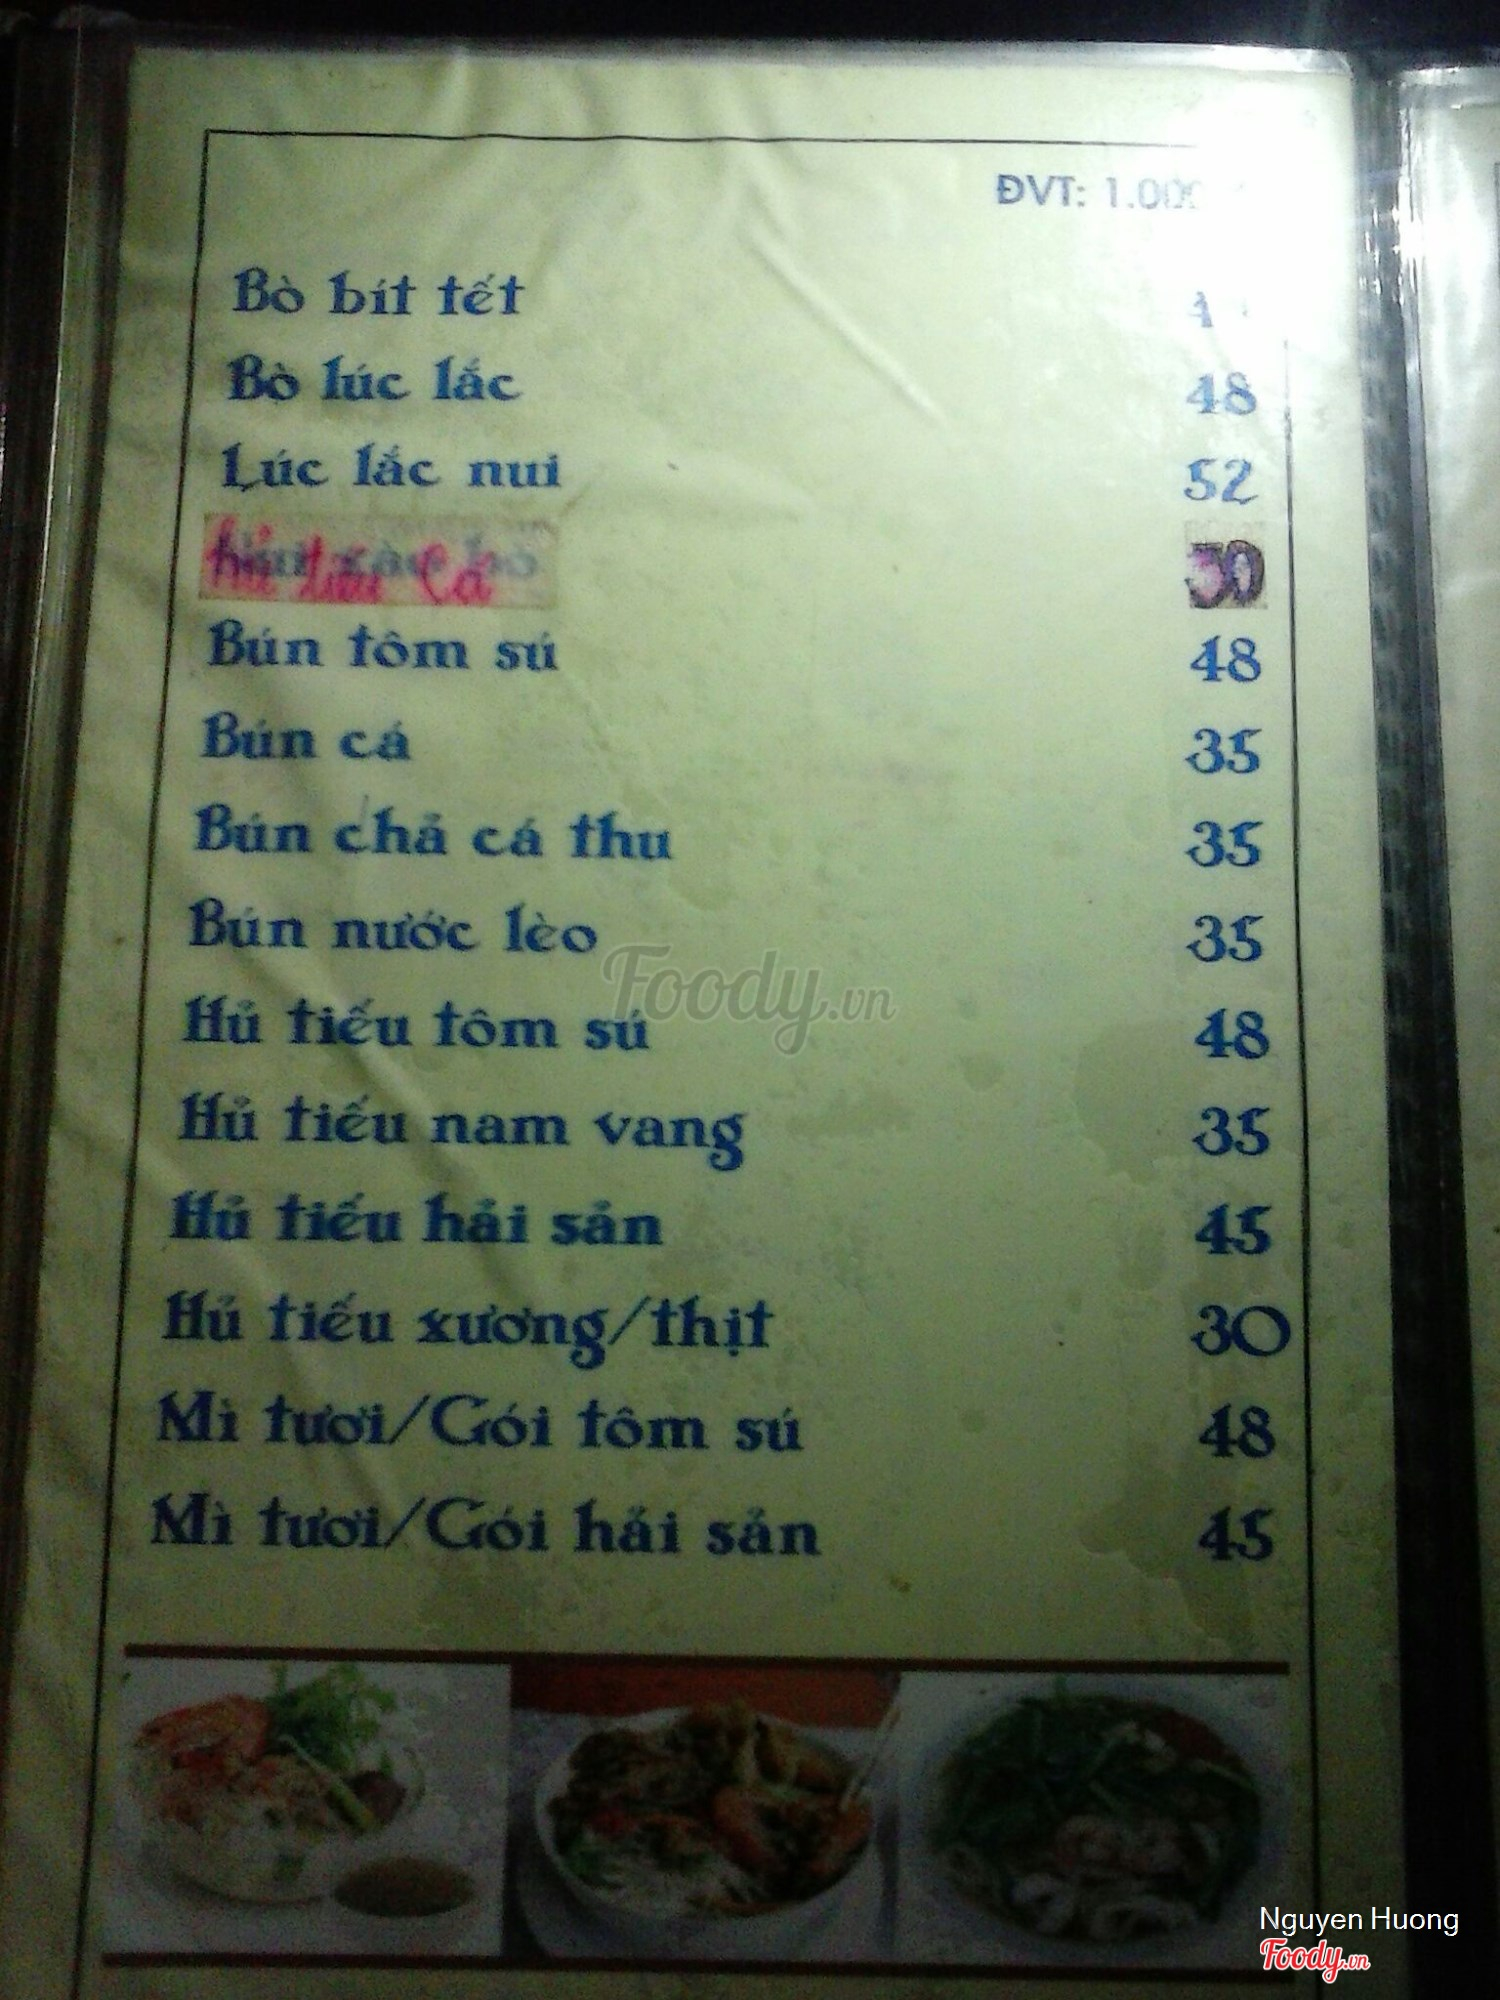 ĐVT: 1.000
Bò bít tết
Bò lúc lắc 48
Lúc lắc nui 52
hủ tiếu cá 30
Bún tôm sú 48
Bún cá 35
Bún chả cá thu 35
Bún nước lèo 35
Foody.vn
Hủ tiếu tôm sú 48
Hủ tiếu nam vang 35
Hủ tiếu hải sản 45
Hủ tiếu xương/thịt 30
Mì tươi/Gói tôm sú 48
Mì tươi/Gói hải sản 45
Nguyen Huong
Foody.vn